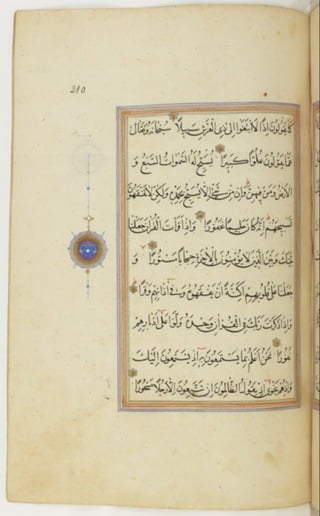 210
كَمَا يَقُولُونَ اِذًا لَابْتَغَوْا اِلٰى ذِى الْعَرْشِ سَبِيلًا سُبْحَانَهُ وَتَعَالٰى
عَمَّا يَقُولُونَ عُلُوًّا كَبِيرًا تُسَبِّحُ لَهُ السَّمٰوَاتُ السَّبْعُ وَ
الْاَرْضُ وَمَنْ فِيهِنَّ وَاِنْ مِنْ شَىْءٍ اِلَّا يُسَبِّحُ بِحَمْدِهِ وَلٰكِنْ لَا تَفْقَهُونَ
تَسْبِيحَهُمْ اِنَّهُ كَانَ حَلِيمًا غَفُورًا وَاِذَا قَرَأْتَ الْقُرْاٰنَ جَعَلْنَا
بَيْنَكَ وَبَيْنَ الَّذِينَ لَا يُؤْمِنُونَ بِالْاٰخِرَةِ حِجَابًا مَسْتُورًا وَ
جَعَلْنَا عَلٰى قُلُوبِهِمْ اَكِنَّةً اَنْ يَفْقَهُوهُ وَفِى اٰذَانِهِمْ وَقْرًا
وَاِذَا ذَكَرْتَ رَبَّكَ فِى الْقُرْاٰنِ وَحْدَهُ وَلَّوْا عَلٰى اَدْبَارِهِمْ
نُفُورًا نَحْنُ اَعْلَمُ بِمَا يَسْتَمِعُونَ بِهِ اِذْ يَسْتَمِعُونَ اِلَيْكَ
وَاِذْ هُمْ نَجْوٰى اِذْ يَقُولُ الظَّالِمُونَ اِنْ تَتَّبِعُونَ اِلَّا رَجُلًا مَسْحُورًا